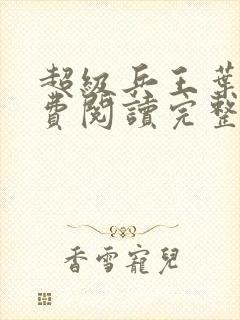 超級兵王葉
費閱讀完整
香雪寵兒